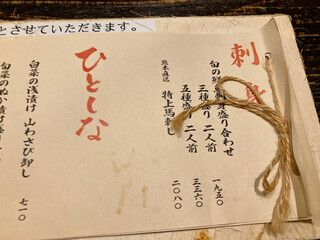 とさせていただきます。
刺身
旬の鮮魚刺身盛り合わせ
三種盛り 二人前 一九五〇
五種盛り 二人前 三三六〇
熊本直送 特上馬刺し 二〇八〇
ひとしな
白菜の浅漬け 山わさび卸し 七一〇